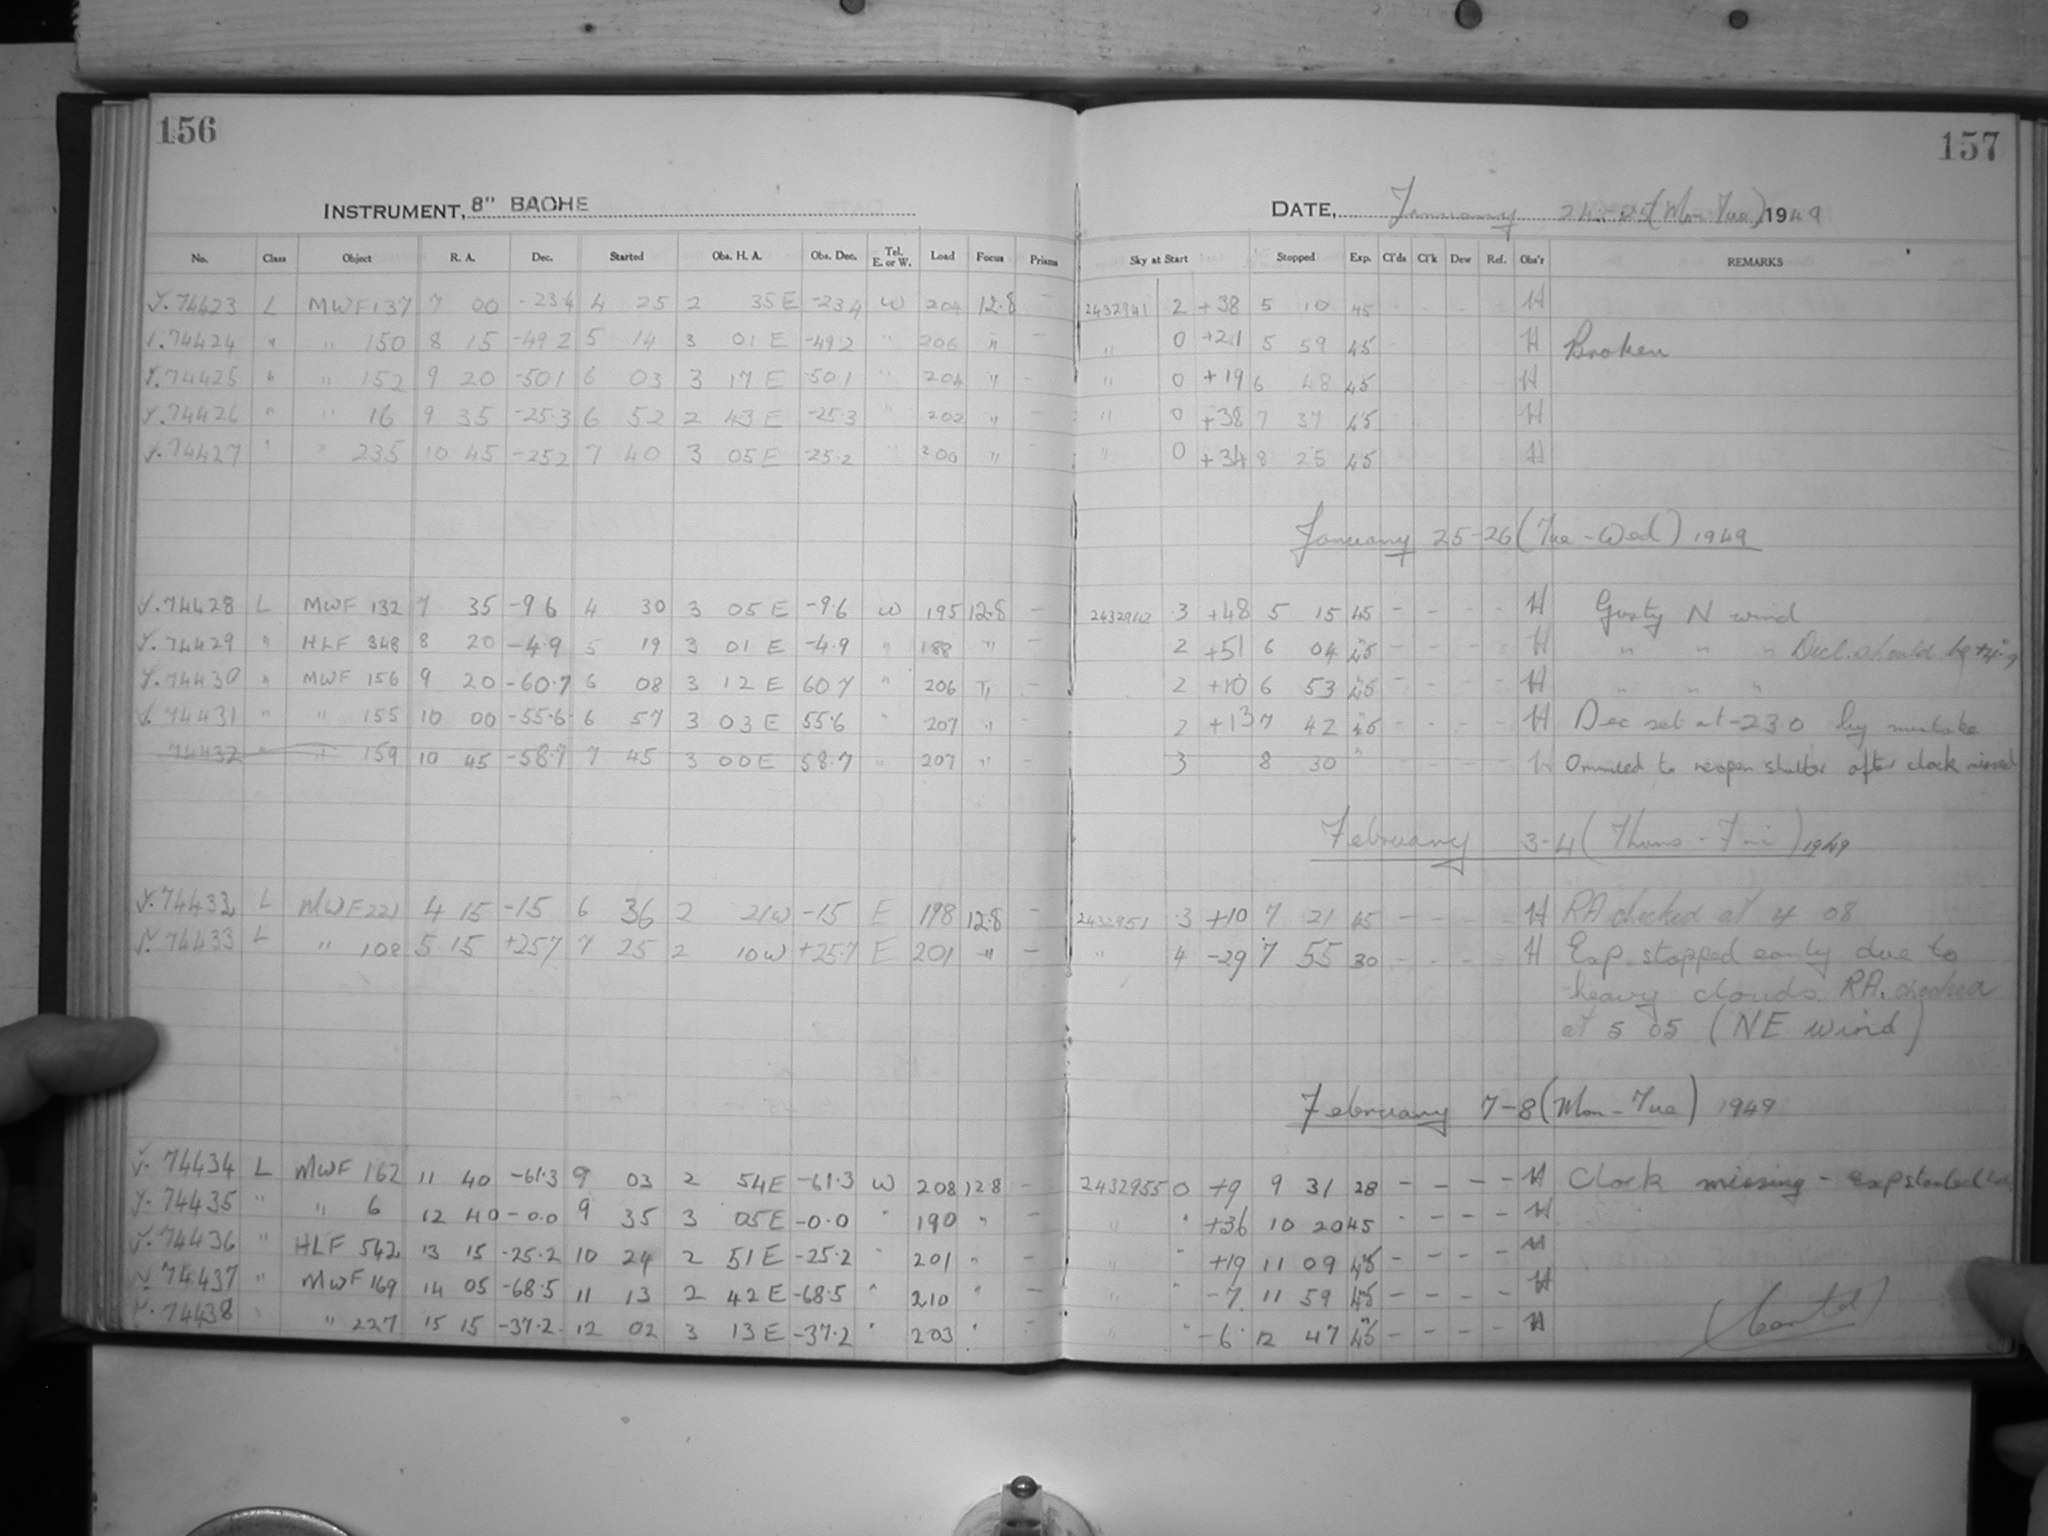 156
INSTRUMENT, 8" BACHE
No. Class Object R. A. Dec. Started Obs. H. A. Obs. Dec. Tel. E. or W. Load Focus Prisms
74423 L MWF 137 7 00 -23.4 4 25 2 35 E -23.4 W 204 12.8 -
74424 " " 150 8 15 -49.2 5 14 3 01 E -49.2 " 206 "
74425 " " 152 9 20 -50.1 6 03 3 17 E -50.1 " 204 " -
74426 " " 16 9 35 -25.3 6 52 2 43 E -25.3 " 202 " -
74427 " " 235 10 45 -25.2 7 40 3 05 E -25.2 200 " -
74428 L MWF 132 7 35 -9.6 4 30 3 05 E -9.6 W 195 12.8 -
74429 " HLF 348 8 20 -4.9 5 19 3 01 E -4.9 " 188 "
74430 " MWF 156 9 20 -60.7 6 08 3 12 E 60.7 " 206 "
74431 " " 155 10 00 -55.6 6 57 3 03 E 55.6 " 207 "
74432 " " 159 10 45 -58.7 7 45 3 00 E 58.7 " 207 "
74432 L MWF 221 4 15 -15 6 36 2 21 W -15 E 198 12.8 -
74433 L " 108 5 15 +25.7 7 25 2 10 W +25.7 E 201 " -
74434 L MWF 162 11 40 -61.3 9 03 2 54 E -61.3 W 208 12.8 -
74435 " " 6 12 40 -0.0 9 35 3 05 E -0.0 " 190 " -
74436 " HLF 542 13 15 -25.2 10 24 2 51 E -25.2 " 201 " -
74437 " MWF 169 14 05 -68.5 11 13 2 42 E -68.5 " 210 " -
74438 " " 227 15 15 -37.2 12 02 3 13 E -37.2 " 203 " -
157
DATE, January 24-25 (Mon-Tue) 1949
Sky at Start Stopped Exp. Cl'ds Cl'k Dew Ref. Obs'r REMARKS
2432941 2 +38 5 10 45 H
" 0 +21 5 59 45 H Broken
" 0 +19 6 48 45 H
" 0 +38 7 37 45 H
" 0 +34 8 25 45 H
January 25-26 (Tue-Wed) 1949
3 +48 5 15 45 - - - - H Gusty N wind
2 +51 6 04 45 - - - - H " " " Decl. should be
2 +10 6 53 45 - - - - H " " "
2 +13 7 42 45 - - - - H Dec set at -23.0 by mistake
3 8 30 " - - - - H Ommited to reopen shutter after clock missed
February 3-4 (Thurs-Fri) 1949
2432951 3 +10 7 21 45 - - - - H RA checked at 4 08
" 4 -29 7 55 30 - - - - H Exp. stopped early due to
heavy clouds. RA. checked
at 5 05 (NE wind)
February 7-8 (Mon-Tue) 1949
2432955 0 +9 9 31 28 - - - - H Clock missing - Exp started
" " +36 10 20 45 - - - - H
" " +19 11 09 45 - - - - H
" " -7 11 59 45 - - - - H
" " -6 12 47 45 - - - - H